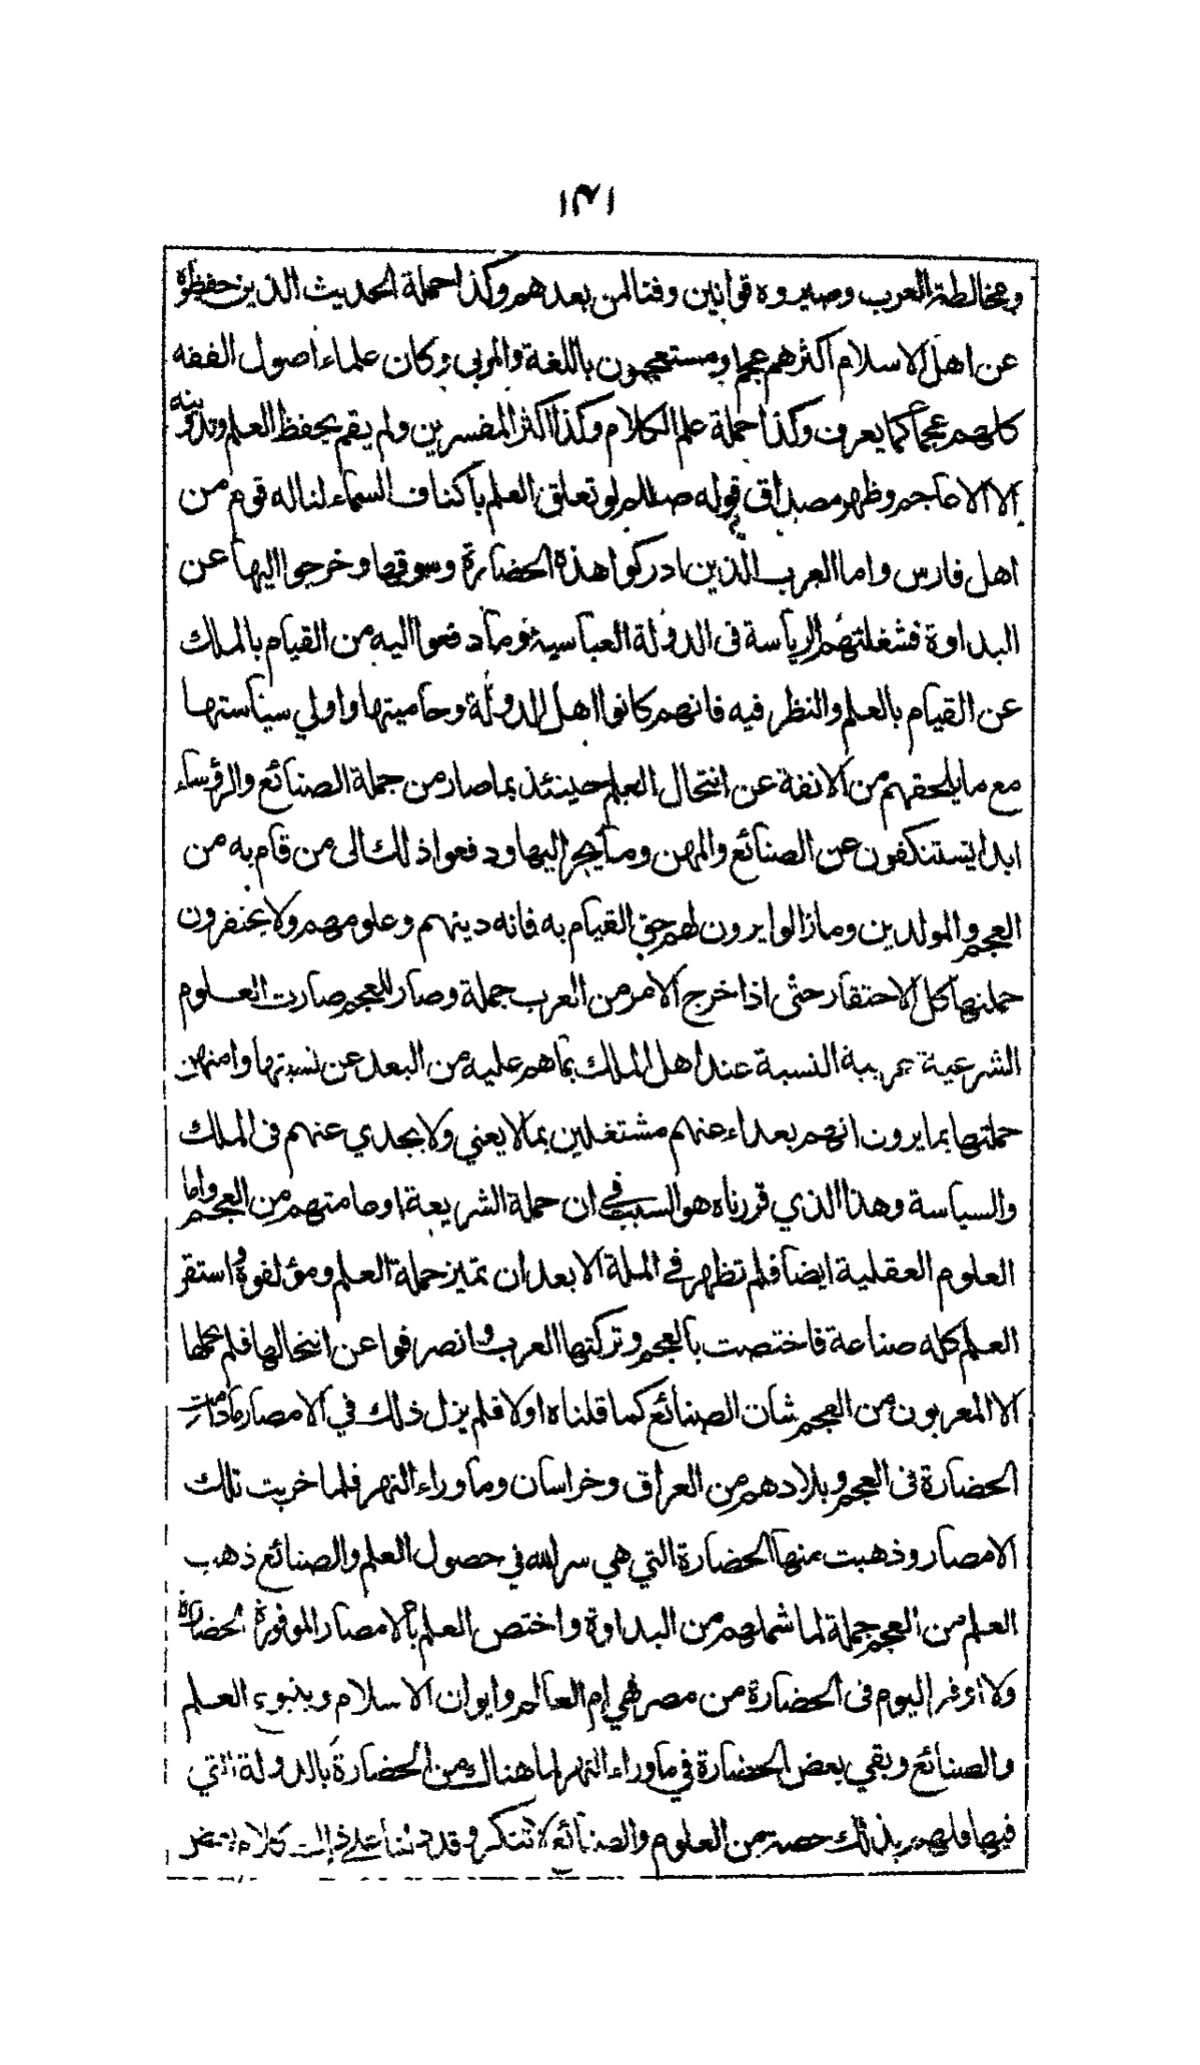 ١٣١
ومخالطة العرب وصيروه قوانين وفنا لمن بعدهم وكذا حملة الحديث الذين حفظوه
عن اهل الاسلام اكثرهم عجم او مستعجمون باللغة والمربى وكان علماء اصول الفقه
كلهم عجما كما يعرف وكذا حملة علم الكلام وكذا اكثر المفسرين ولم يقم بحفظ العلم وتدوينه
الا الاعاجم وظهر مصداق قوله صللم لو تعلق العلم بأكناف السماء لناله قوم من
اهل فارس واما العرب الذين ادركوا هذه الحضارة وسوقها وخرجوا اليها عن
البداوة فشغلتهم الرياسة فى الدولة العباسية وما دفعوا اليه من القيام بالملك
عن القيام بالعلم والنظر فيه فانهم كانوا اهل الدولة وحاميتها واولي سياستها
مع ما يلحقهم من الانفة عن انتحال العلم حينئذ بما صار من جملة الصنائع والرؤساء
ابدا يستنكفون عن الصنائع والمهن وما يجر اليها ودفعوا ذلك الى من قام به من
العجم والمولدين وما زالوا يرون لهم حق القيام به فانه دينهم وعلومهم ولا يحتقرون
حملتها كل الاحتقار حتى اذا خرج الامر من العرب جملة وصار للعجم صارت العلوم
الشرعية غريبة النسبة عند اهل الملك بما هم عليه من البعد عن نسبتها وامتهن
حملتها بما يرون انهم بعداء عنهم مشتغلين بما لا يعني ولا يجدي عنهم فى الملك
والسياسة وهذا الذي قررناه هو السبب في ان حملة الشريعة او عامتهم من العجم واما
العلوم العقلية ايضا فلم تظهر في الملة الا بعد ان تميز حملة العلم ومؤلفوه واستقر
العلم كله صناعة فاختصت بالعجم وتركتها العرب وانصرفوا عن انتحالها فلم يحملها
الا المعربون من العجم شان الصنائع كما قلناه اولا فلم يزل ذلك في الامصار ما دامت
الحضارة فى العجم وبلادهم من العراق وخراسان وما وراء النهر فلما خربت تلك
الامصار وذهبت منها الحضارة التي هي سر الله في حصول العلم والصنائع ذهب
العلم من العجم جملة لما شملهم من البداوة واختص العلم بالامصار الموفورة الحضارة
ولا اوفر اليوم فى الحضارة من مصر فهي ام العالم وايوان الاسلام وينبوع العلم
والصنائع وبقي بعض الحضارة في ما وراء النهر لما هناك من الحضارة بالدولة التي
فيها فلهم بذلك حصة من العلوم والصنائع لا تنكر وقد دلنا على ذلك كلام بعض